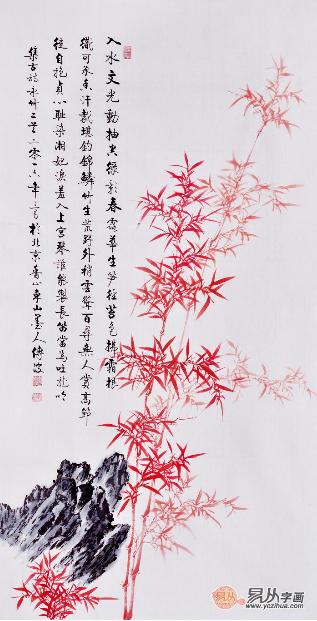 入水文光動抽空綠影春露華生笋徑苔色拂霜根
織可承香汗裁堪釣錦鱗竹生荒野外梢雲聳百尋無人賞高節
徒自抱貞心恥染湘妃淚羞入上宮琴誰能製長笛當爲吐龍吟
集古詩詠竹二首二零一六年於北京香山東山墨人
易从字画
www.yczihua.com